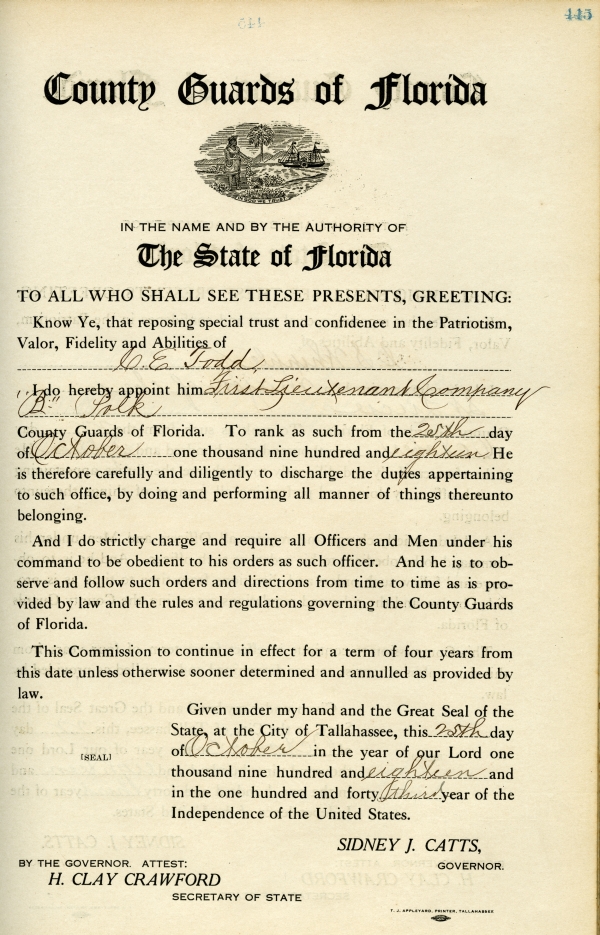 445
County Guards of Florida
IN GOD WE TRUST
IN THE NAME AND BY THE AUTHORITY OF
The State of Florida
TO ALL WHO SHALL SEE THESE PRESENTS, GREETING:
Know Ye, that reposing special trust and confidence in the Patriotism,
Valor, Fidelity and Abilities of
C E Todd
I do hereby appoint him First Lieutenant Company
"B" Polk
County Guards of Florida. To rank as such from the 28th day
of October one thousand nine hundred and eighteen He
is therefore carefully and diligently to discharge the duties appertaining
to such office, by doing and performing all manner of things thereunto
belonging.
And I do strictly charge and require all Officers and Men under his
command to be obedient to his orders as such officer. And he is to ob-
serve and follow such orders and directions from time to time as is pro-
vided by law and the rules and regulations governing the County Guards
of Florida.
This Commission to continue in effect for a term of four years from
this date unless otherwise sooner determined and annulled as provided by
law.
Given under my hand and the Great Seal of the
State, at the City of Tallahassee, this 28th day
of October in the year of our Lord one
[SEAL]
thousand nine hundred and eighteen and
in the one hundred and forty third year of the
Independence of the United States.
SIDNEY J. CATTS,
GOVERNOR.
BY THE GOVERNOR. ATTEST:
H. CLAY CRAWFORD
SECRETARY OF STATE
T. J. APPLEYARD, PRINTER, TALLAHASSEE